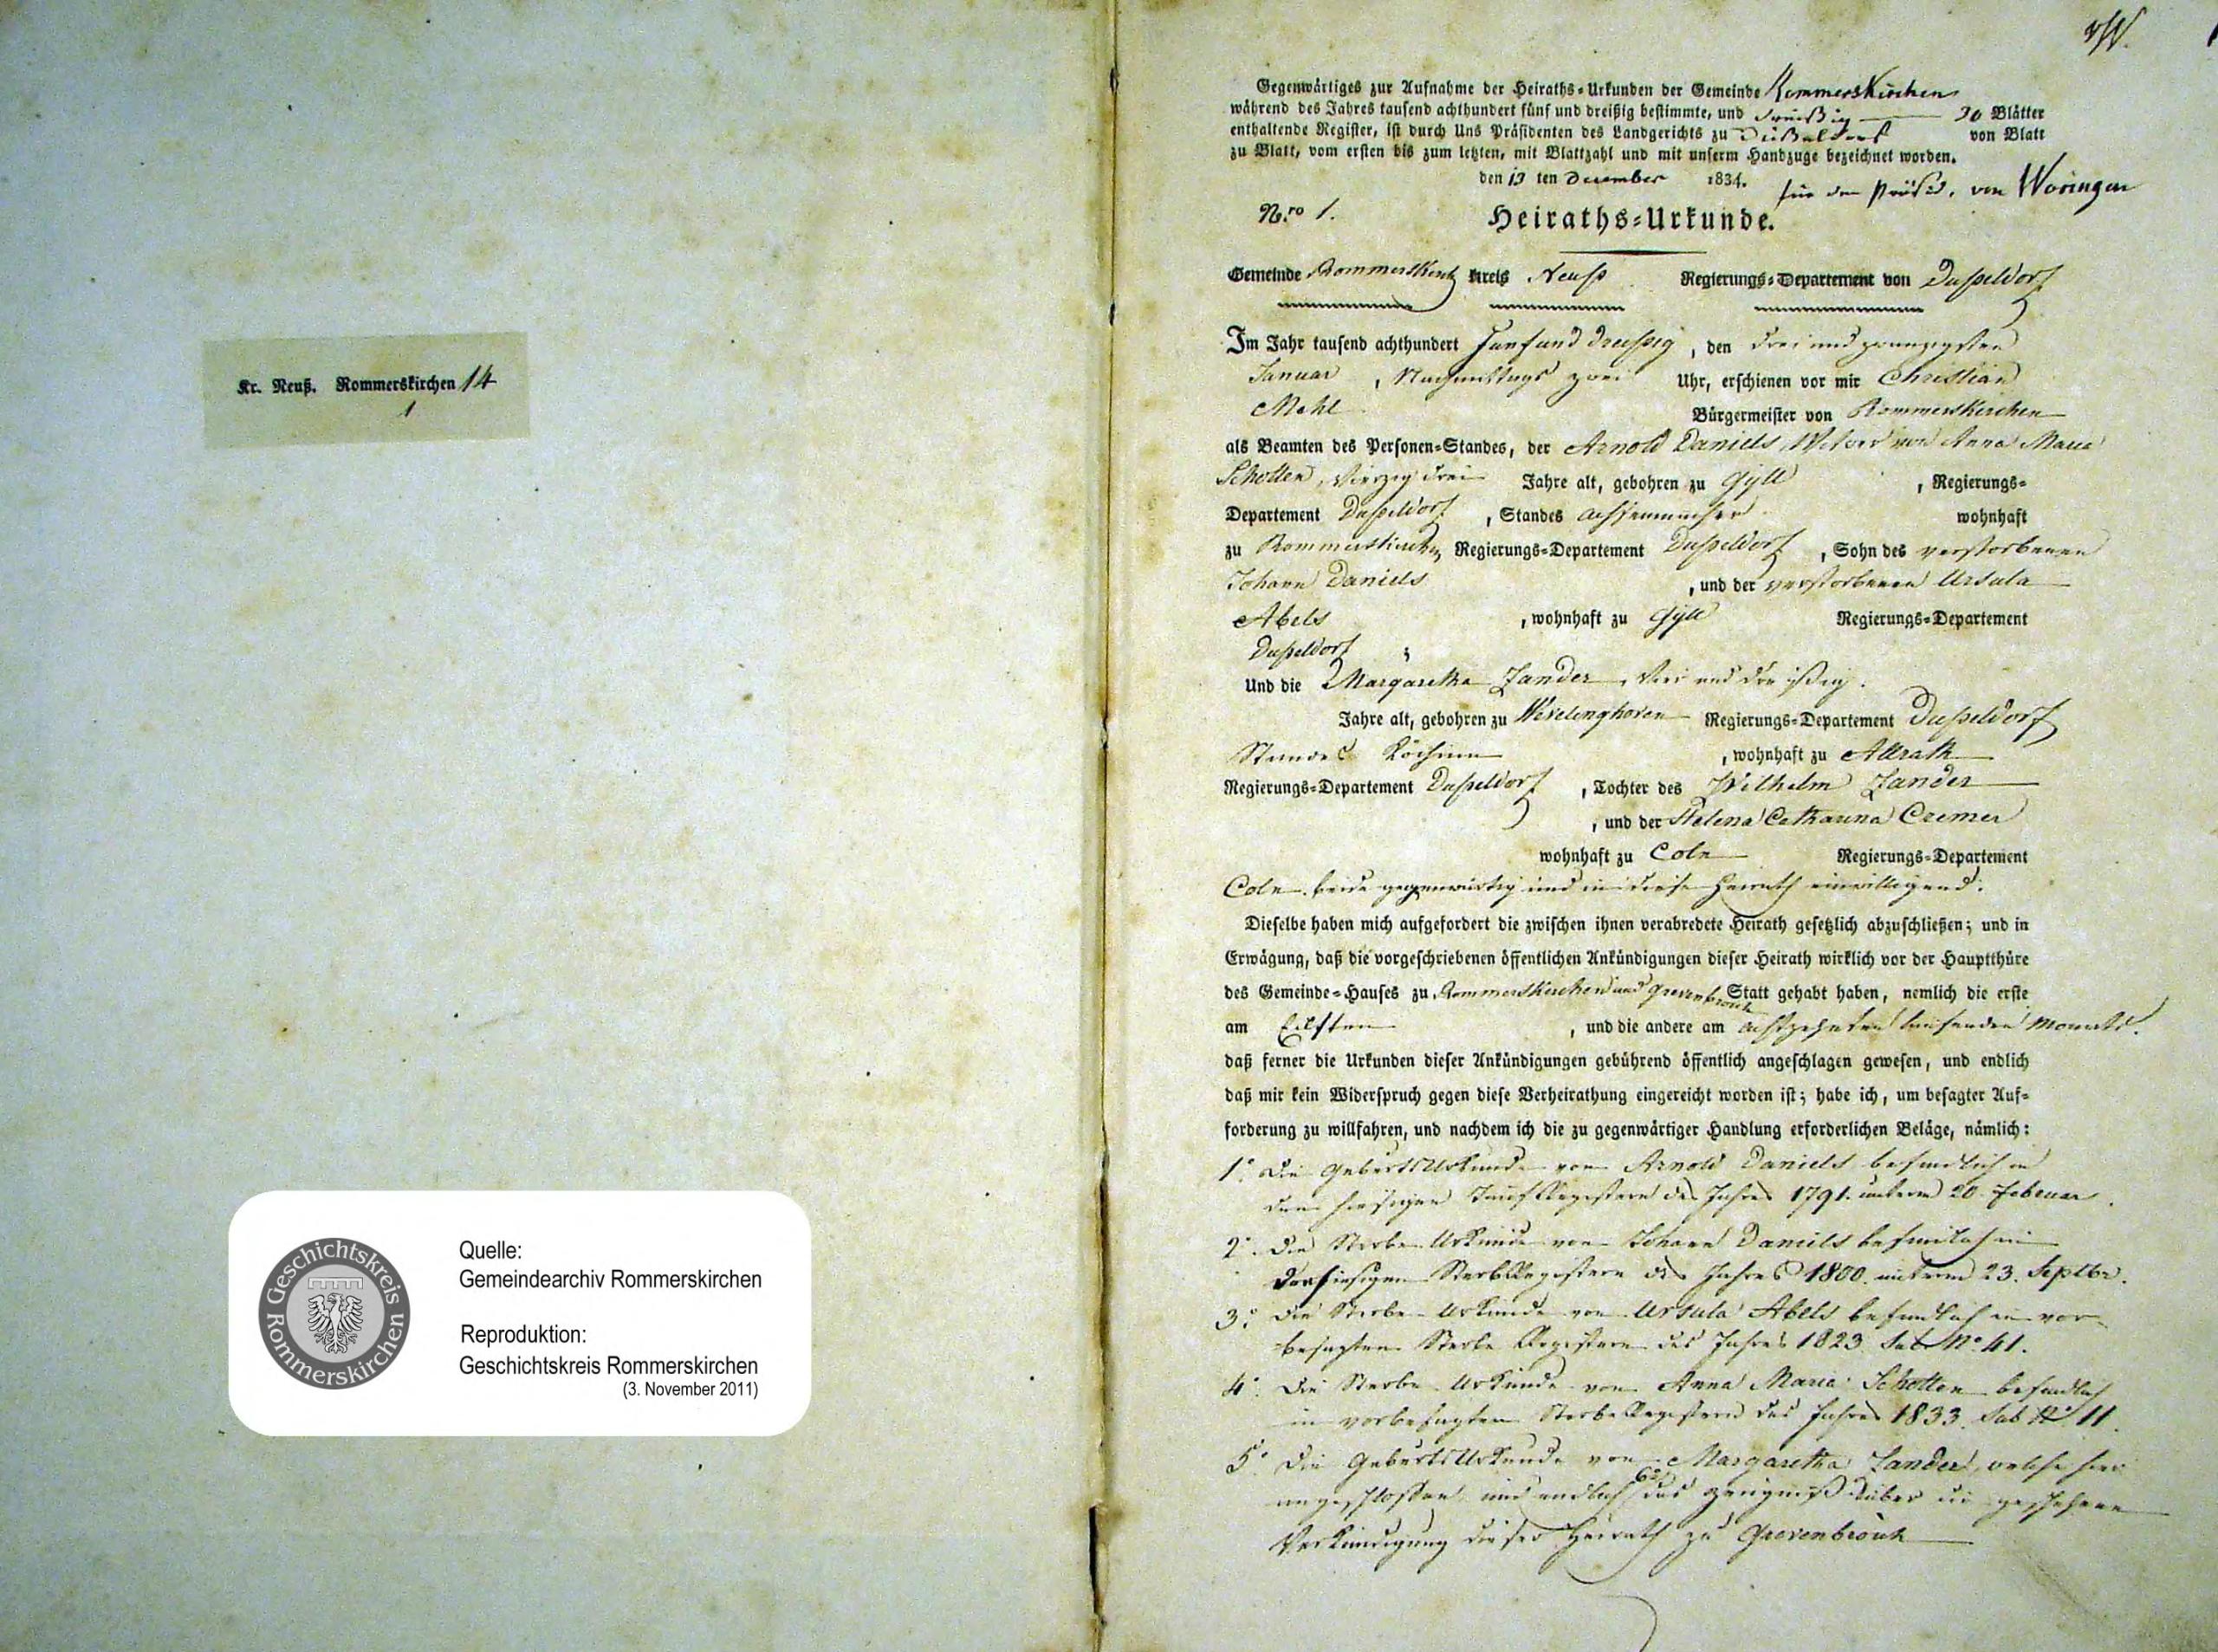 Kr. Neuß. Rommerskirchen 14
1
Geschichtskreis Rommerskirchen
Quelle:
Gemeindearchiv Rommerskirchen
Reproduktion:
Geschichtskreis Rommerskirchen
(3. November 2011)
Gegenwärtiges zur Aufnahme der Heiraths-Urkunden der Gemeinde Rommerskirchen
während des Jahres tausend achthundert fünf und dreißig bestimmte, und dreißig 30 Blätter
enthaltende Register, ist durch Uns Präsidenten des Landgerichts zu Düßeldorf von Blatt
zu Blatt, vom ersten bis zum letzten, mit Blattzahl und mit unserm Handzuge bezeichnet worden.
den 13 ten December 1834. für den Präsid. von Woringen
N.ro 1. Heiraths-Urkunde.
Gemeinde Rommerskirch Kreis Neuß Regierungs-Departement von Dußeldorf
Im Jahr tausend achthundert Funf und dreißig, den drei und zwanzigsten
Januar, Nachmittags zwei Uhr, erschienen vor mir Christian
Mehl Bürgermeister von Rommerskirchen
als Beamten des Personen-Standes, der Arnold Daniels, Witwer von Anna Maria
Schotten, Vierzig drei Jahre alt, gebohren zu Gyll, Regierungs-
Departement Dußeldorf, Standes wohnhaft
zu Rommerskirchen, Regierungs-Departement Dußeldorf, Sohn des verstorbenen
Johann Daniels, und der verstorbenen Ursula
Abels, wohnhaft zu Gyll Regierungs-Departement
Dußeldorf;
Und die Margaretha Zander, Vier und dreißig.
Jahre alt, gebohren zu Wevelinghoven Regierungs-Departement Dußeldorf
Standes Köchinn, wohnhaft zu Allrath
Regierungs-Departement Dußeldorf, Tochter des Wilhelm Zander
, und der Helena Catharina Cremer
wohnhaft zu Coln Regierungs-Departement
Coln. beide gegenwärtig und in diese Heirath einwilligend.
Dieselbe haben mich aufgefordert die zwischen ihnen verabredete Heirath gesetzlich abzuschließen; und in
Erwägung, daß die vorgeschriebenen öffentlichen Ankündigungen dieser Heirath wirklich vor der Hauptthüre
des Gemeinde-Hauses zu Rommerskirchen und Grevenbroich Statt gehabt haben, nemlich die erste
am Eilften, und die andere am achtzehnten laufenden Monats.
daß ferner die Urkunden dieser Ankündigungen gebührend öffentlich angeschlagen gewesen, und endlich
daß mir kein Widerspruch gegen diese Verheirathung eingereicht worden ist; habe ich, um besagter Auf-
forderung zu willfahren, und nachdem ich die zu gegenwärtiger Handlung erforderlichen Beläge, nämlich:
1° Die Geburts Urkunde von Arnold Daniels befindlich in
den hiesigen Taufregistern des Jahres 1791. unterm 20. Februar.
2° Die Sterbe Urkunde von Johann Daniels befindlich in
den hiesigen Sterbregistern des Jahres 1800. unterm 23. Septbr.
3° Die Sterbe Urkunde von Ursula Abels befindlich in vor-
besagten Sterbe Registern des Jahres 1823 Sub N° 41.
4° Die Sterbe Urkunde von Anna Maria Schotten befindlich
in vorbesagten Sterbe Registern des Jahres 1833. Sub N° 11.
5° Die Geburts Urkunde von Margaretha Zander, welche hier
angeschloßen und endlich 6°) das Zeugniß über die geschehene
Verkündigung dieser Heirath zu Grevenbroich